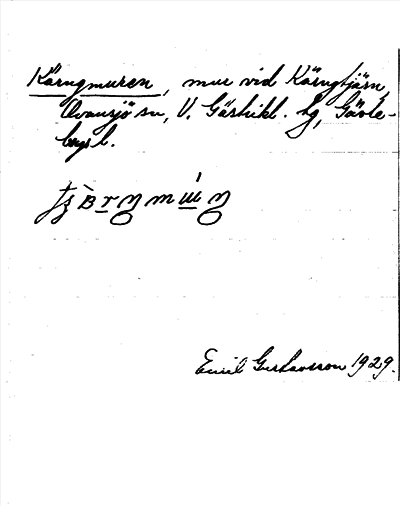 Kärngmuren, mur vid Kärngtjärn,
Ovansjö sn, V. Gästrikl. hg, Gävle-
borgs l.
Emil Gustavsson 1929.